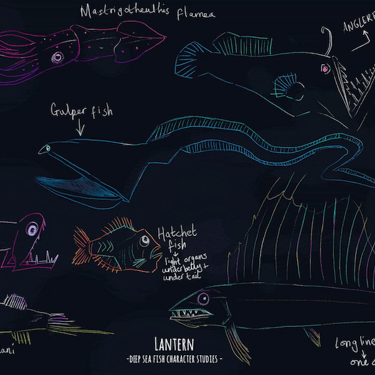 Mastrigotheuthis flamea
ANGLERF
Gulper fish
Hatchet
fish
light organs
underbelly +
under tail
ani
Longline
one d
LANTERN
-DEEP SEA FISH CHARACTER STUDIES-